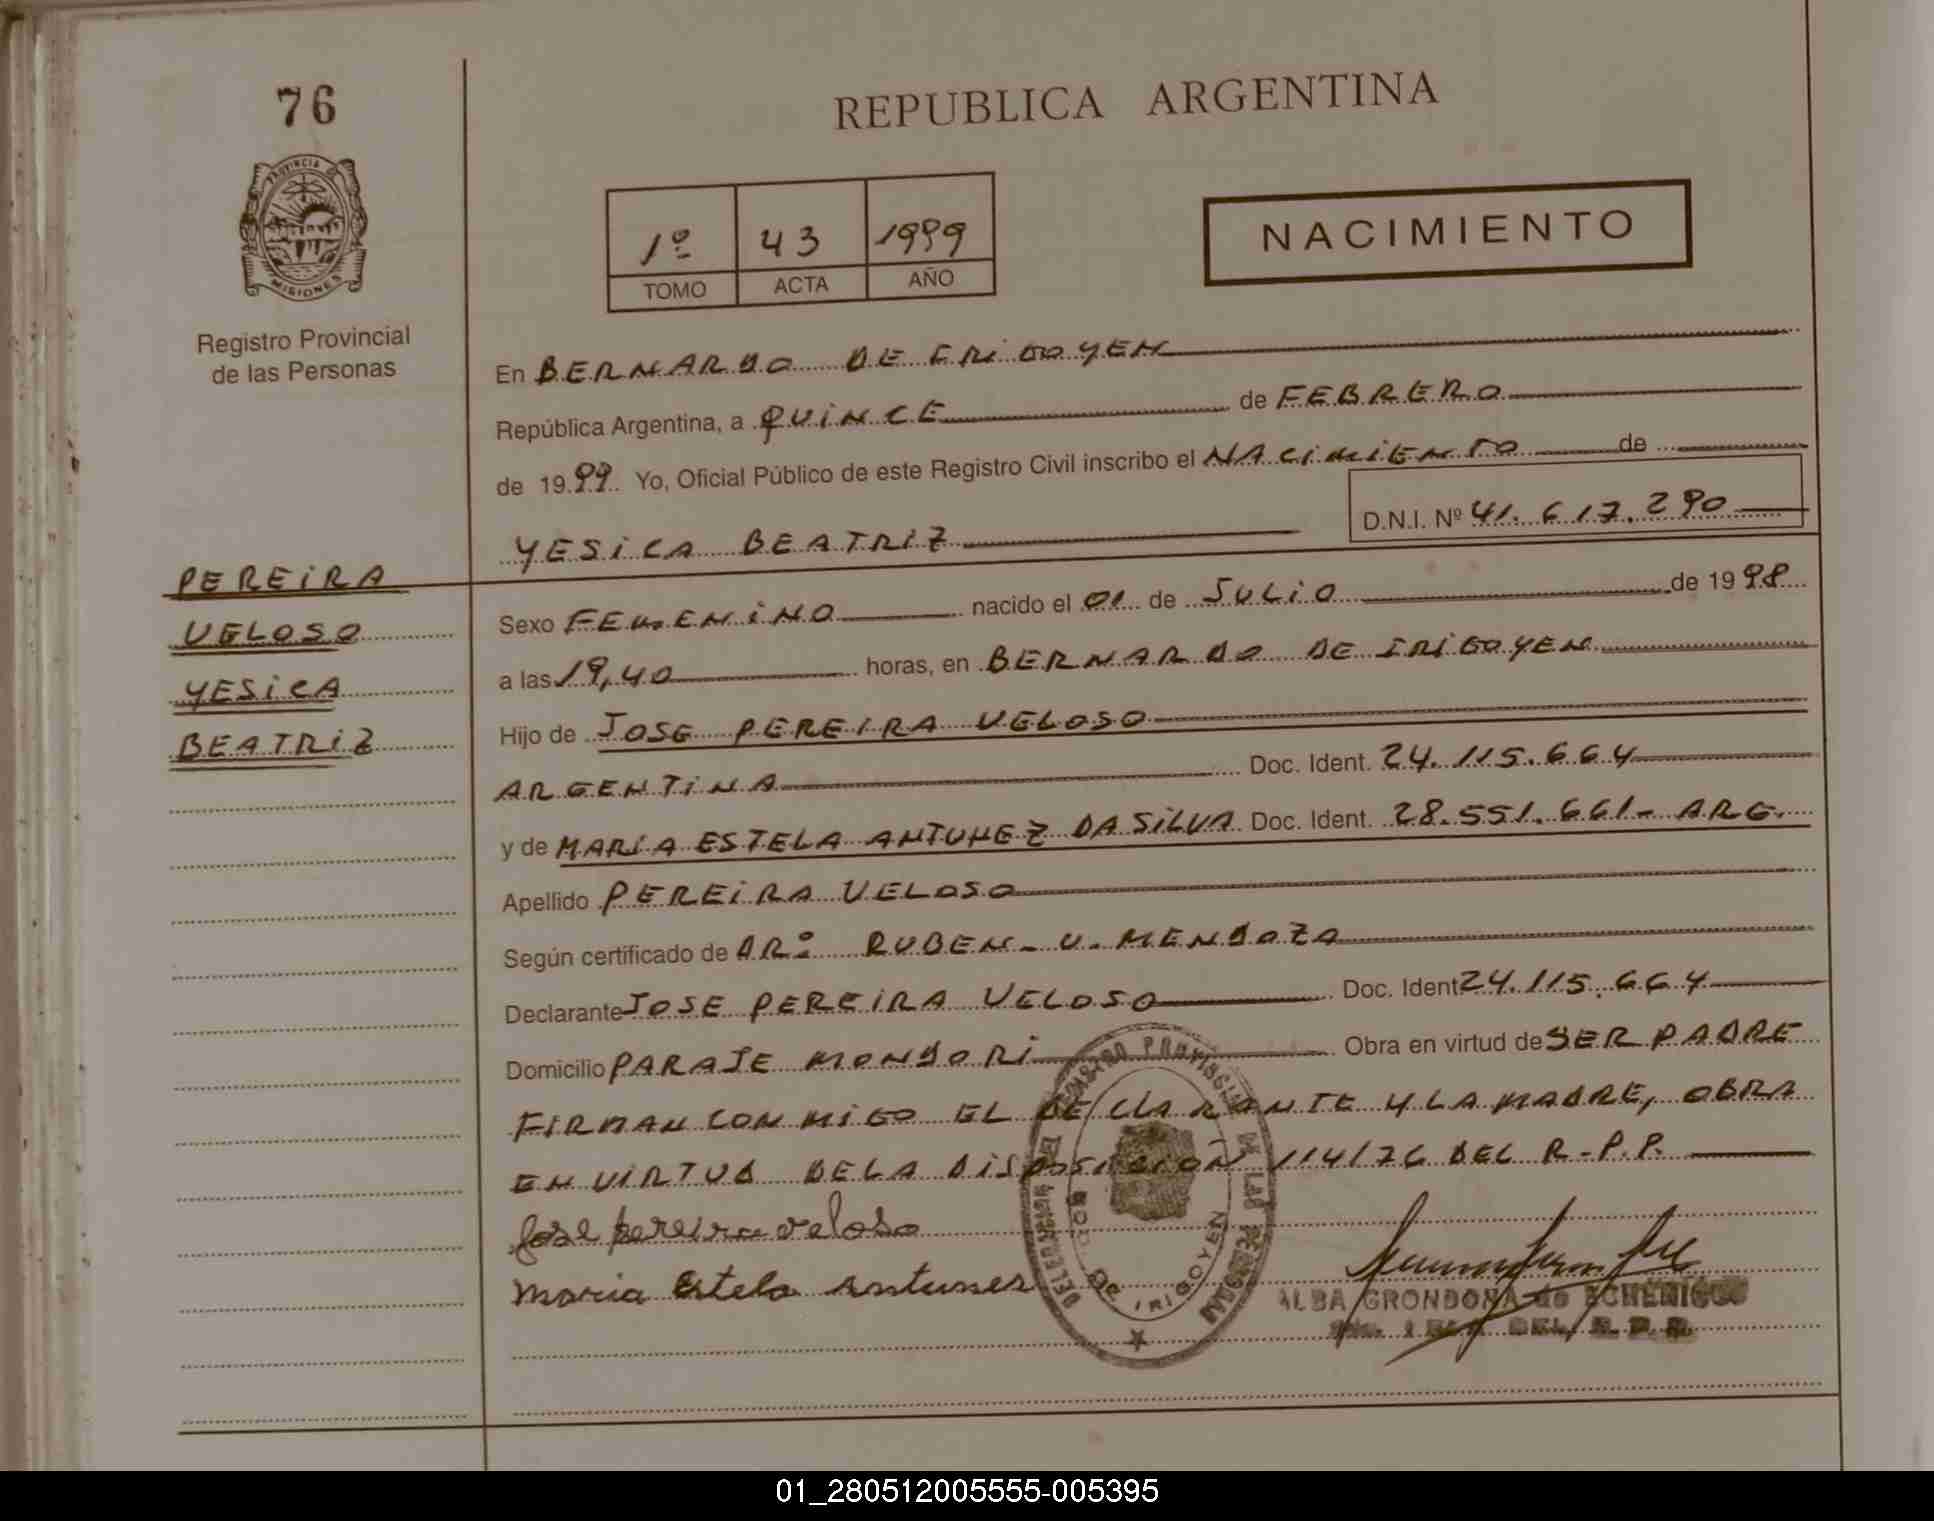 76
REPUBLICA ARGENTINA
PROVINCIA DE
MISIONES
Registro Provincial
de las Personas
1º 43 1999
TOMO ACTA AÑO
NACIMIENTO
En BERNARDO DE IRIGOYEN
República Argentina, a QUINCE de FEBRERO
de 1999. Yo, Oficial Público de este Registro Civil inscribo el NACIMIENTO de
YESICA BEATRIZ D.N.I. Nº 41.617.290
PEREIRA
VELOSO
YESICA
BEATRIZ
Sexo FEMENINO nacido el 01 de JULIO de 1998
a las 19,40 horas, en BERNARDO DE IRIGOYEN
Hijo de JOSE PEREIRA VELOSO
ARGENTINA Doc. Ident. 24.115.664
y de MARIA ESTELA ANTUNEZ DA SILVA Doc. Ident. 28.551.661- ARG.
Apellido PEREIRA VELOSO
Según certificado de DR: RUBEN-V.MENDOZA
Declarante JOSE PEREIRA VELOSO Doc. Ident 24.115.664
Domicilio PARAJE MONDORI Obra en virtud de SER PADRE
FIRMAN CONMIGO EL DECLARANTE Y LA MADRE, OBRA
EN VIRTUD DE LA DISPOSICION 114/76 DEL R-P.P.
Jose pereira veloso
Maria Estela Antunes
REGISTRO PROVINCIAL DE LAS PERSONAS
DELEGACION
BDO. DE IRIGOYEN
ALBA GRONDONA de ECHENIQUE
DEL R.P.P.
01_280512005555-005395